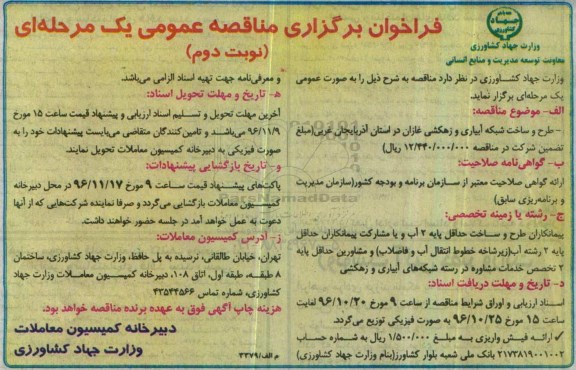 فراخوان برگزاری مناقصه عمومی یک مرحله‌ای
(نوبت دوم)
وزارت جهاد کشاورزی
معاونت توسعه مدیریت و منابع انسانی
وزارت جهاد کشاورزی در نظر دارد مناقصه به شرح ذیل را به صورت عمومی
یک مرحله‌ای برگزار نماید.
الف- موضوع مناقصه:
- طرح و ساخت شبکه آبیاری و زهکشی غازان در استان آذربایجان غربی(مبلغ
تضمین شرکت در مناقصه ۱۲/۴۴۰/۰۰۰/۰۰۰ ریال)
ب- گواهی‌نامه صلاحیت:
ارائه گواهی صلاحیت معتبر از سازمان برنامه و بودجه کشور(سازمان مدیریت
و برنامه‌ریزی سابق)
ج- رشته یا زمینه تخصصی:
پیمانکاران طرح و ساخت حداقل پایه ۲ آب و یا مشارکت پیمانکاران حداقل
پایه ۲ رشته آب(زیرشاخه خطوط انتقال آب و فاضلاب) و مشاورین حداقل پایه
۲ تخصص خدمات مشاوره در رسته شبکه‌های آبیاری و زهکشی
د- تاریخ و مهلت دریافت اسناد:
اسناد ارزیابی و اوراق شرایط مناقصه از ساعت ۹ مورخ ۹۶/۱۰/۲۰ لغایت
ساعت ۱۵ مورخ ۹۶/۱۰/۲۵ به صورت فیزیکی توزیع می‌گردد.
✓ ارائه فیش واریزی به مبلغ ۱/۵۰۰/۰۰۰ ریال به شماره حساب
۲۱۷۳۸۱۹۰۰۱۰۰۲ بانک ملی شعبه بلوار کشاورز(بنام وزارت جهاد کشاورزی)
و معرفی‌نامه جهت تهیه اسناد الزامی می‌باشد.
ه- تاریخ و مهلت تحویل اسناد:
آخرین مهلت تحویل و تسلیم اسناد ارزیابی و پیشنهاد قیمت ساعت ۱۵ مورخ
۹۶/۱۱/۹ می‌باشد و تامین کنندگان متقاضی می‌بایست پیشنهادات خود را به
صورت فیزیکی به دبیرخانه کمیسیون معاملات تحویل نمایند.
و- تاریخ بازگشایی پیشنهادات:
پاکت‌های پیشنهاد قیمت ساعت ۹ مورخ ۹۶/۱۱/۱۷ در محل دبیرخانه
کمیسیون معاملات بازگشایی می‌گردد و صرفا نماینده شرکت‌هایی که از آنها
دعوت به عمل خواهد آمد در جلسه حضور خواهند داشت.
ز- آدرس کمیسیون معاملات:
تهران، خیابان طالقانی، نرسیده به پل حافظ، وزارت جهاد کشاورزی، ساختمان
۸ طبقه، طبقه اول، اتاق ۱۰۸، دبیرخانه کمیسیون معاملات وزارت جهاد
کشاورزی، شماره تماس ۴۳۵۴۴۵۶۶
هزینه چاپ آگهی فوق به عهده برنده مناقصه خواهد بود.
دبیرخانه کمیسیون معاملات
وزارت جهاد کشاورزی
م الف/۳۳۷۹